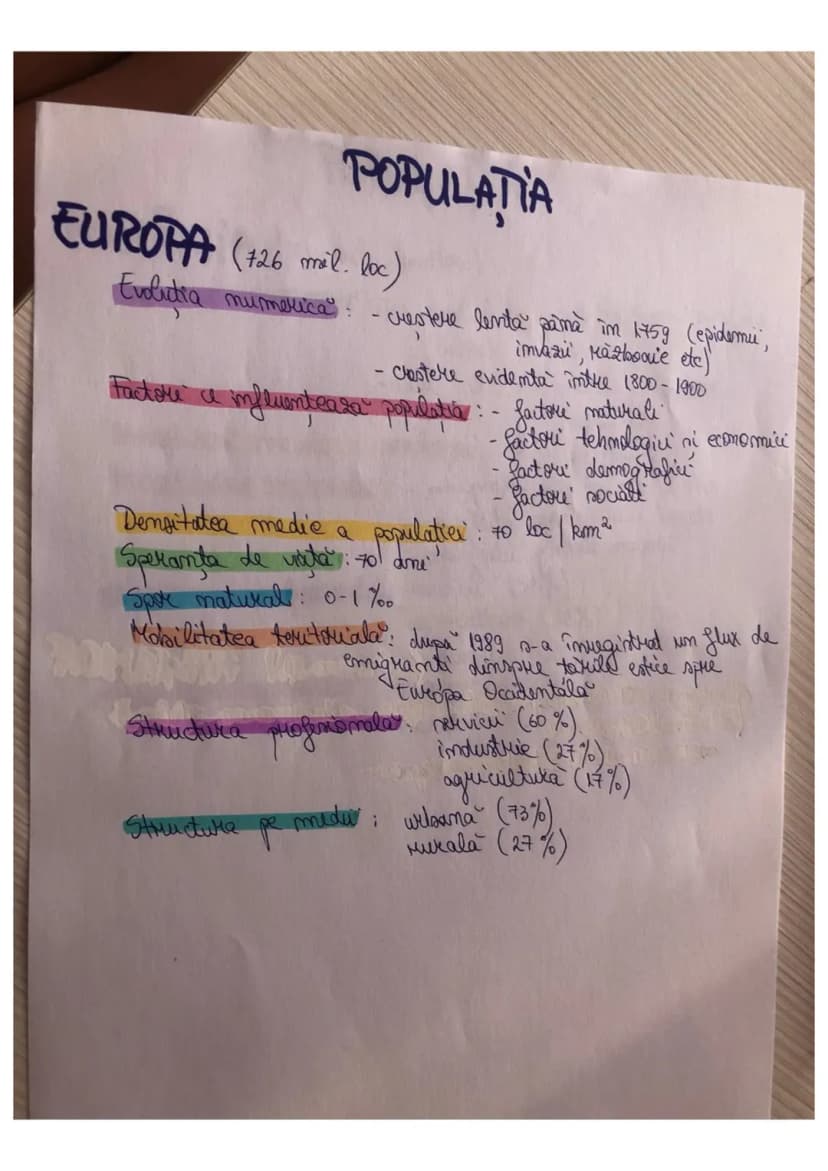 POPULAȚIA
EUROPA (726 mil. loc)
Evoluția numerică : - creștere lentă până în 1759 (epidemii,
invazii, războaie etc)
- creștere evidentă între 1800 - 1900
Factori ce influențează populația : - factori naturali
- factori tehnologici și economici
- factori demografici
- factori sociali
Densitatea medie a populației : 70 loc / km²
Speranța de viață : 70 ani
Spor natural : 0-1 ‰
Mobilitatea teritorială : după 1989 s-a înregistrat un flux de
emigranți dinspre țările estice spre
Europa Occidentală
Structura profesională : servicii (60 %)
industrie (27%)
agricultură (17%)
Structura pe medii : urbană (73%)
rurală (27 %)